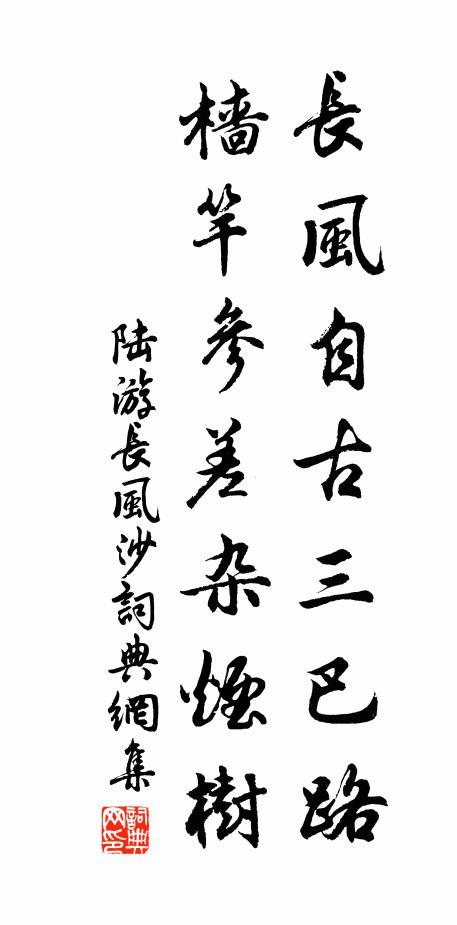 長風自古三巴路
檣竿參差杂煙樹
陆游長風沙詞典網集
詞典網印